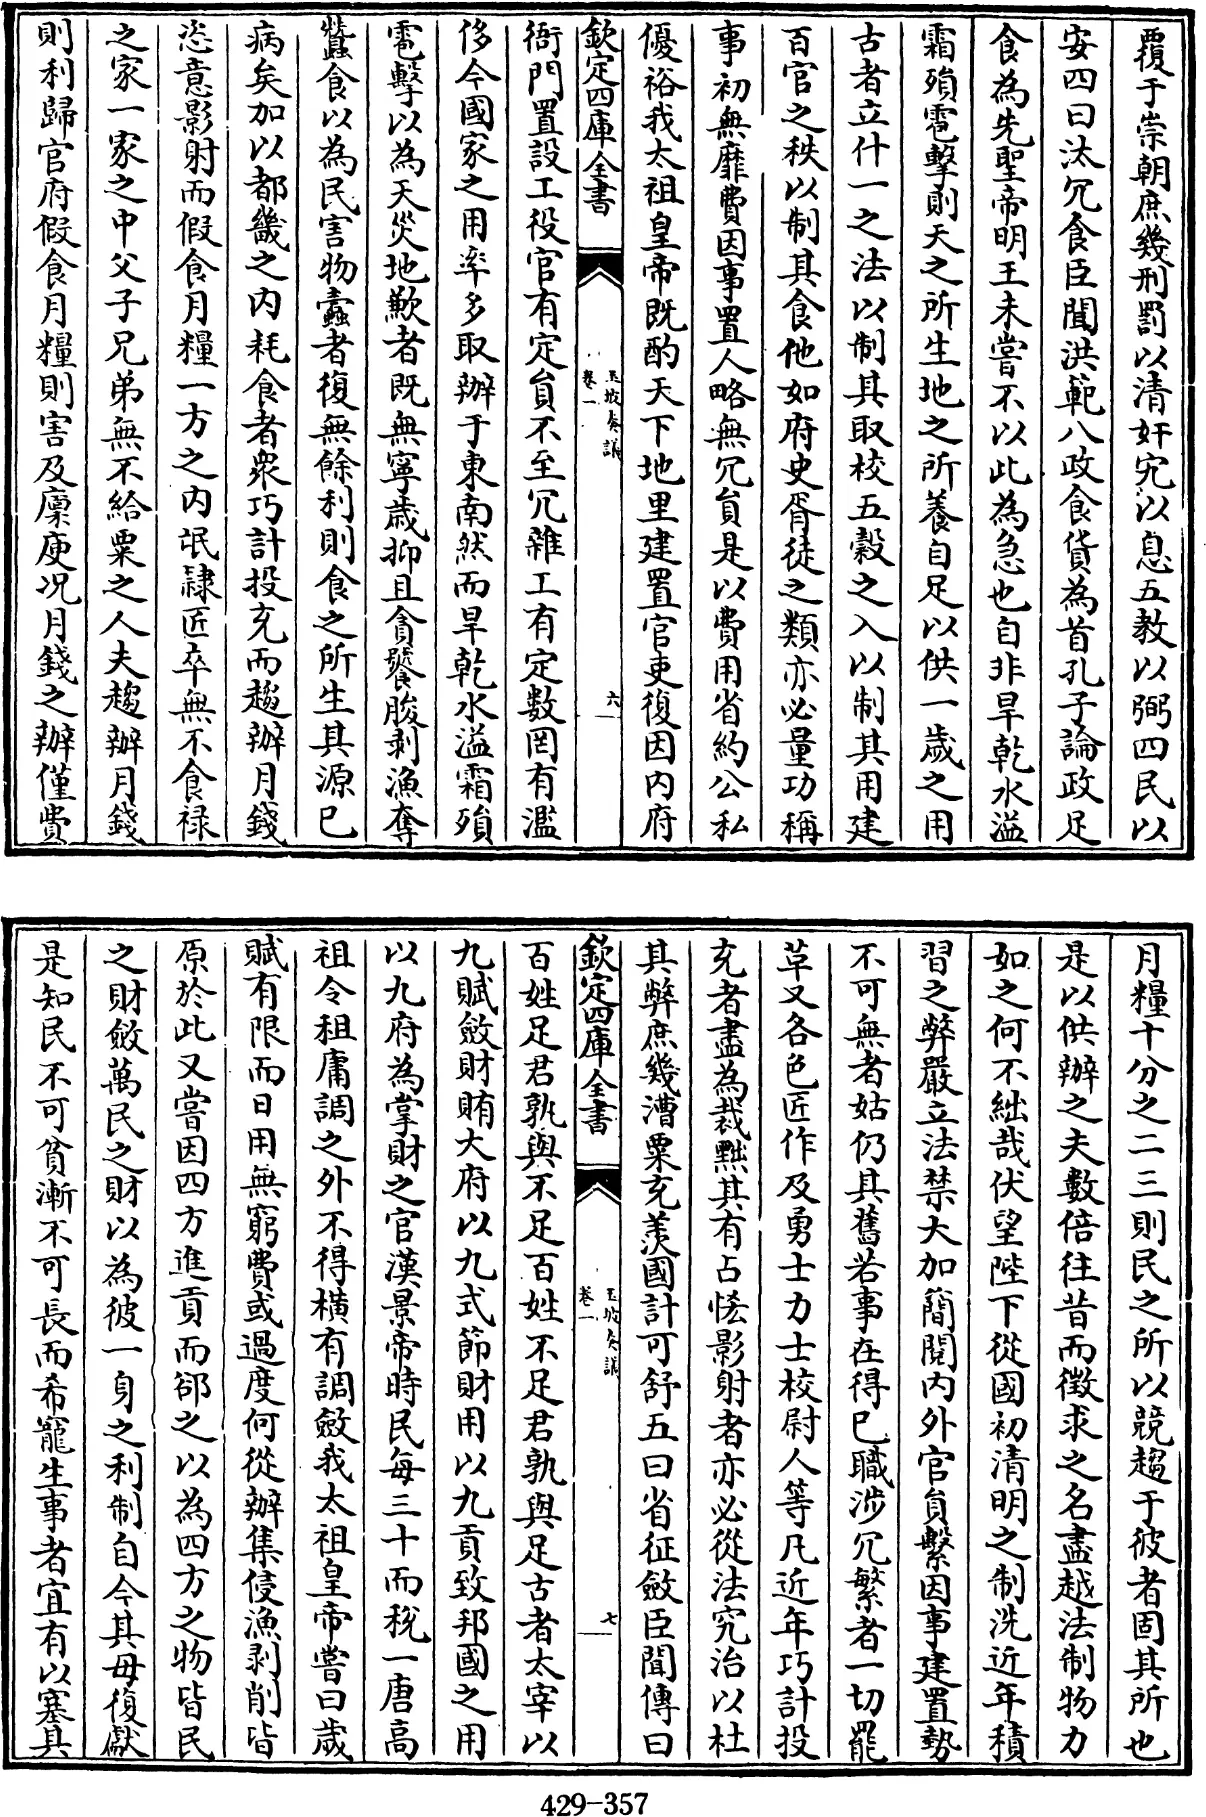 覆于崇朝庶幾刑罰以清奸宄以息五教以弼四民以
安四曰汰冗食臣聞洪範八政食貨為首孔子論政足
食為先聖帝明王未嘗不以此為急也自非旱乾水溢
霜殞雹擊則天之所生地之所養自足以供一歲之用
古者立什一之法以制其取校五穀之入以制其用建
百官之秩以制其食他如府史胥徒之類亦必量功稱
事初無靡費因事置人略無冗員是以費用省約公私
優裕我太祖皇帝既酌天下地里建置官吏復因内府
欽定四庫全書
玉坡奏議
卷一
六
衙門置設工役官有定員不至冗雜工有定數罔有濫
侈今國家之用率多取辦于東南然而旱乾水溢霜殞
雹擊以為天災地歉者既無寧歲抑且貪饕朘剥漁奪
蠶食以為民害物蠹者復無餘利則食之所生其源已
病矣加以都畿之内耗食者衆巧計投充而趨辦月錢
恣意影射而假食月糧一方之内氓隸匠卒無不食祿
之家一家之中父子兄弟無不給粟之人夫趨辦月錢
則利歸官府假食月糧則害及廩庾况月錢之辦僅費
月糧十分之二三則民之所以競趨于彼者固其所也
是以供辦之夫數倍往昔而徵求之名盡越法制物力
如之何不絀哉伏望陛下從國初清明之制洗近年積
習之弊嚴立法禁大加簡閲内外官員繫因事建置勢
不可無者姑仍其舊若事在得已職涉冗繁者一切罷
草又各色匠作及勇士力士校尉人等凡近年巧計投
充者盡為裁黜其有占恡影射者亦必從法究治以杜
其弊庶幾漕粟充羡國計可舒五曰省征斂臣聞傳曰
欽定四庫全書
玉坡奏議
卷一
七
百姓足君孰與不足百姓不足君孰與足古者太宰以
九賦斂財賄大府以九式節財用以九貢致邦國之用
以九府為掌財之官漢景帝時民毎三十而稅一唐高
祖令租庸調之外不得横有調斂我太祖皇帝嘗曰歲
賦有限而日用無窮費或過度何從辦集侵漁剥削皆
原於此又嘗因四方進貢而郤之以為四方之物皆民
之財斂萬民之財以為彼一身之利制自今其毋復獻
是知民不可貧漸不可長而希寵生事者宜有以塞其
429-357